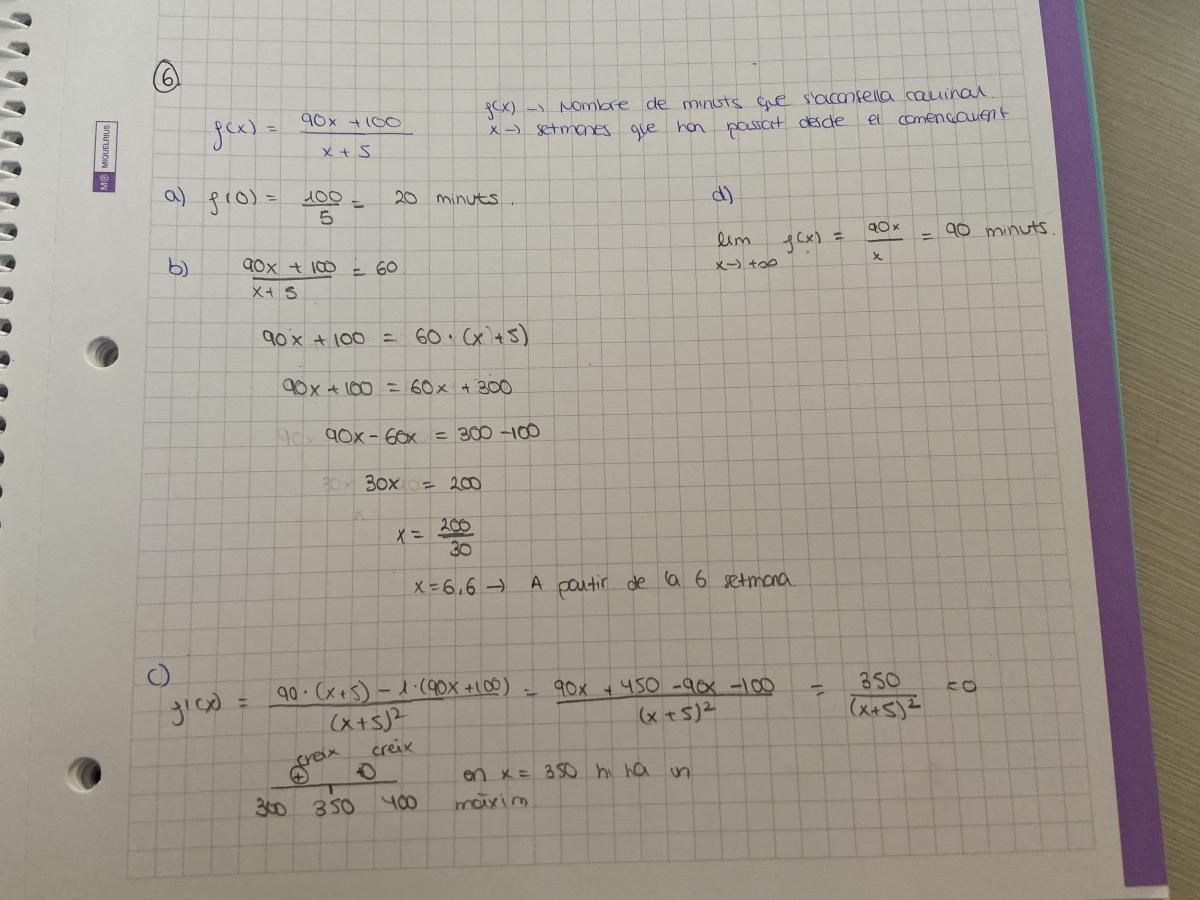 6
f(x) → Nombre de minuts que s'aconsella caminar.
f(x) = 90x + 100 / x + 5
x → setmanes que han passat desde el començament
M® MIQUELRIUS
a) f(0) = 100/5 = 20 minuts.
d)
lim x→+∞ f(x) = 90x/x = 90 minuts.
b) 90x + 100 / x + 5 = 60
90x + 100 = 60 · (x + 5)
90x + 100 = 60x + 300
90x - 60x = 300 - 100
30x = 200
x = 200/30
x = 6,6 → A partir de la 6 setmana
c)
f'(x) = 90·(x+5) - 1·(90x+100) / (x+5)² = 90x + 450 - 90x - 100 / (x+5)² = 350 / (x+5)² = 0
creix creix
en x = 350 hi ha un
300 350 400 màxim